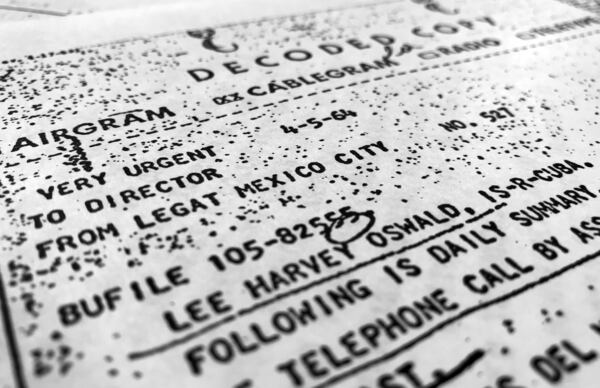 DECODED COPY
AIRGRAM XXX CABLEGRAM □ RADIO □ TELETYPE
VERY URGENT 4-5-64 NO. 527
TO DIRECTOR
FROM LEGAT MEXICO CITY
BUFILE 105-82555
LEE HARVEY OSWALD, IS-R-CUBA.
FOLLOWING IS DAILY SUMMARY.
TELEPHONE CALL BY
DEL